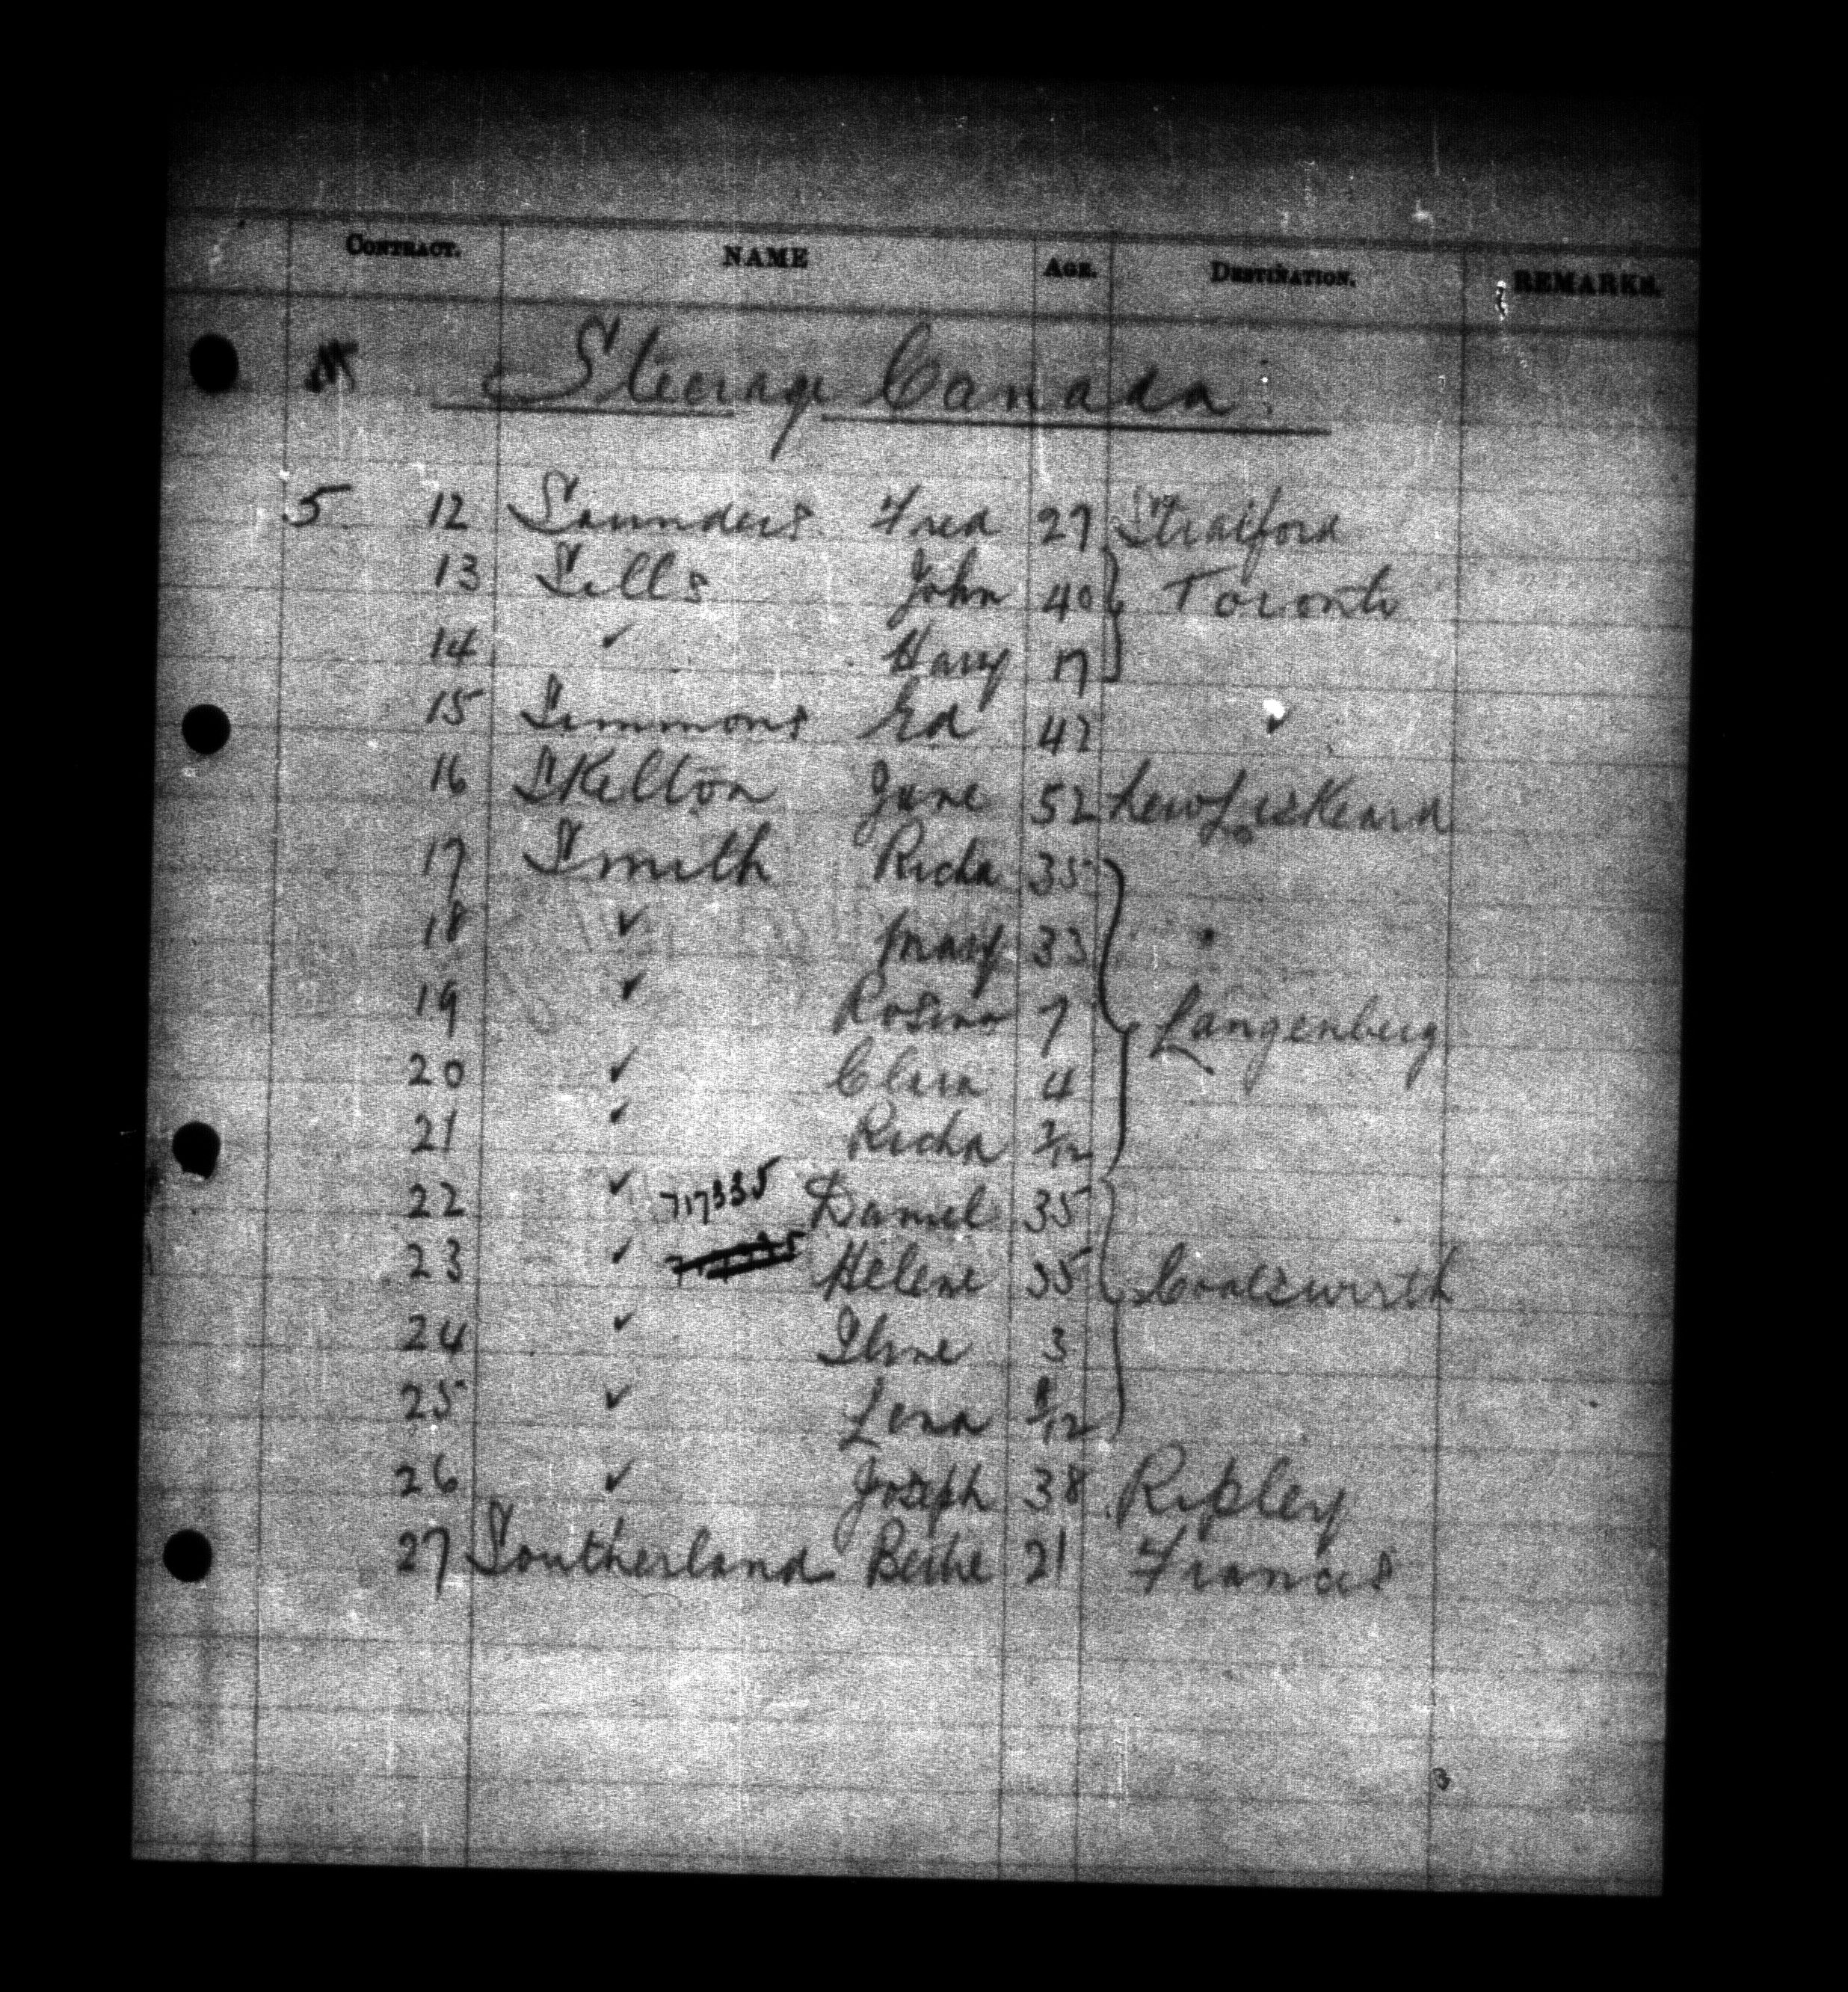 CONTRACT. NAME AGE. DESTINATION. REMARKS.
Steerage Canada:
5 12 Saunders Fred 27 Stratford
13 Sells John 40 Toronto
14 ✓ Harry 17
15 Simmons Ed 42 ✓
16 Skelton Jane 52 New Liskeard
17 Smith Richd 35
18 ✓ Mary 33
19 ✓ Rosina 7 Langenberg
20 ✓ Clara 4
21 ✓ Richd /12
22 ✓ 717335 Daniel 35
23 ✓ Helene 35 Coatsworth
24 ✓ 3
25 ✓ Lena /12
26 ✓ Joseph 38 Ripley
27 Southerland 21 Francis